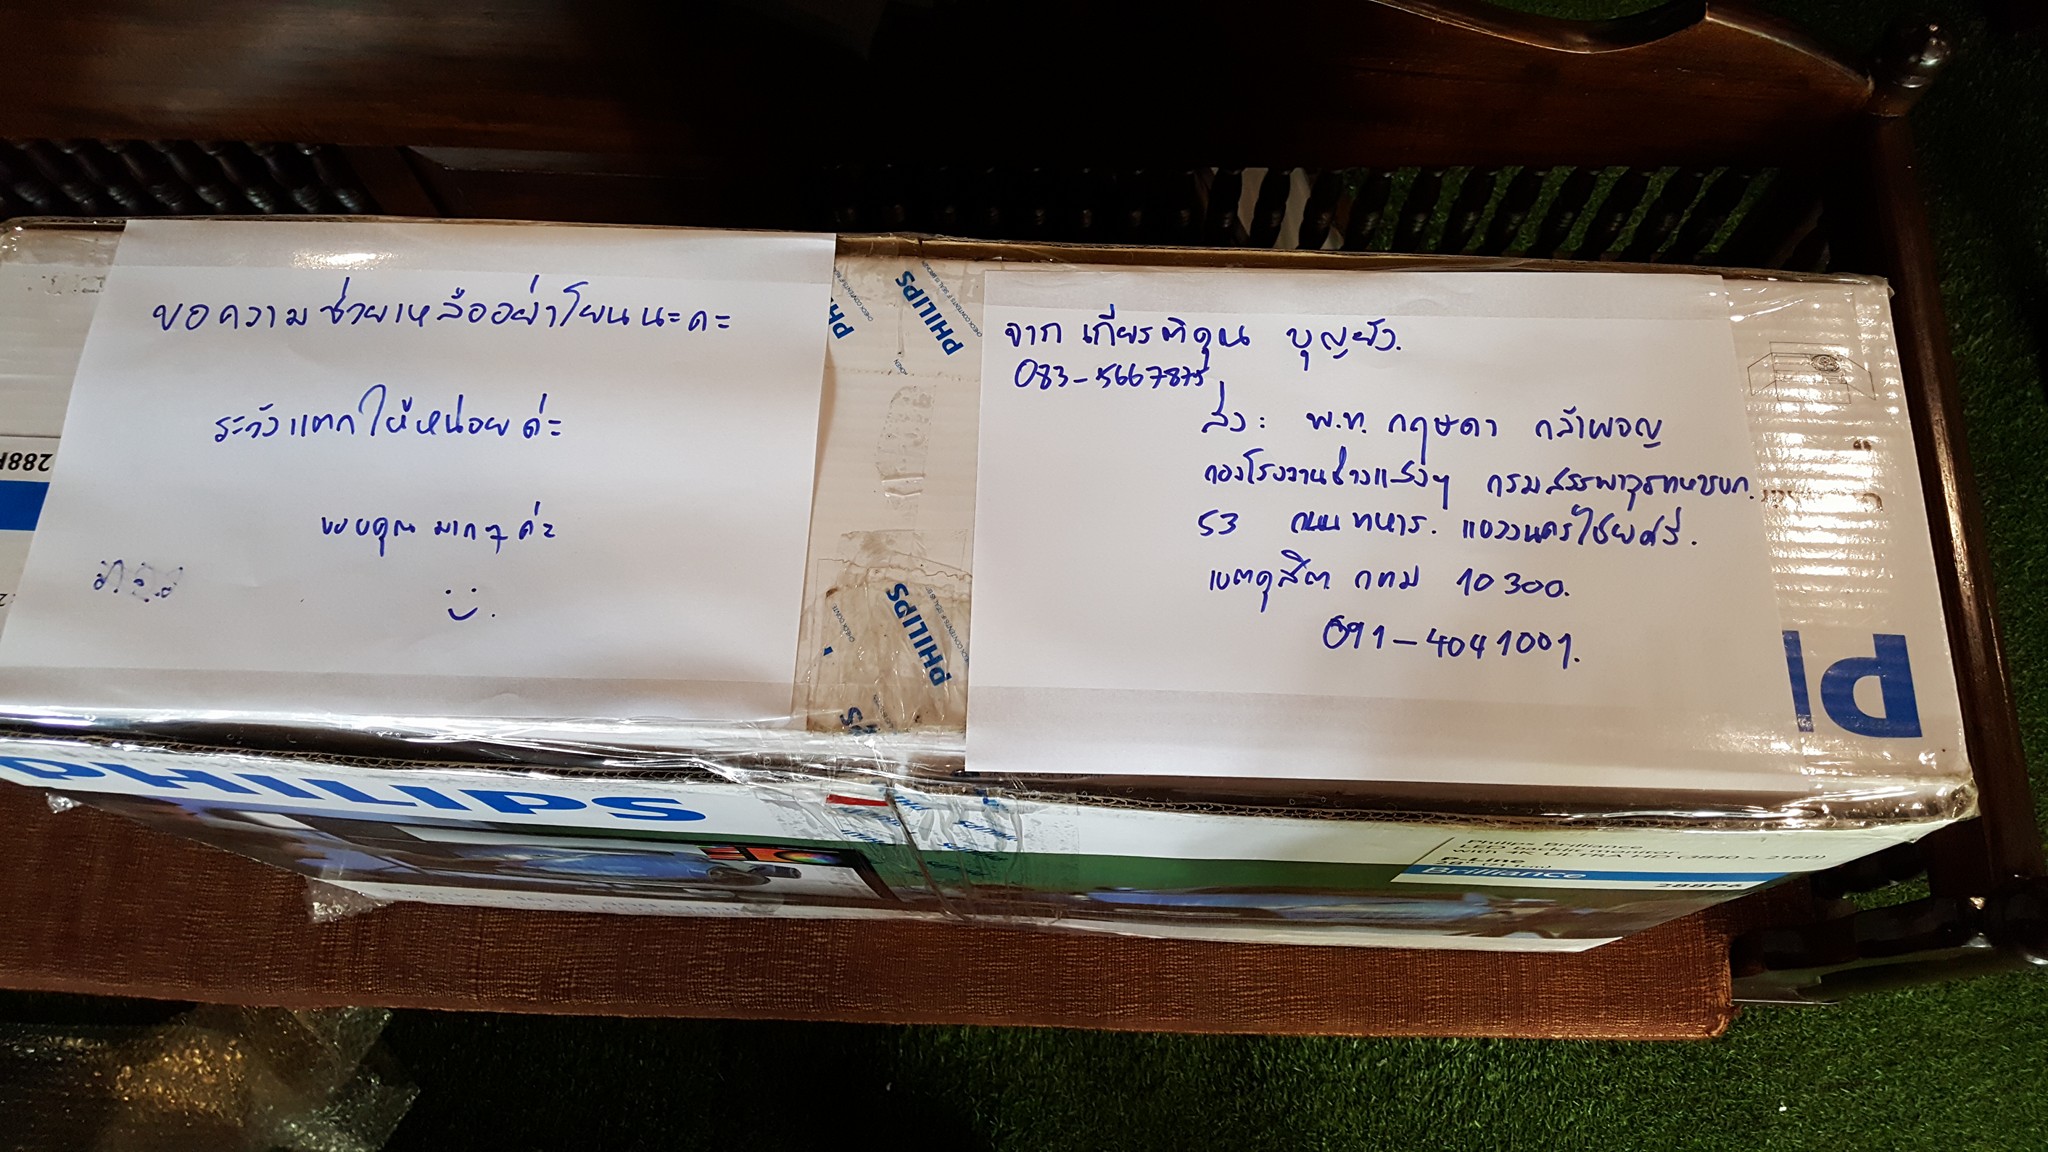 ขอความช่วยเหลืออย่าโยนนะคะ
ระวังแตกให้หน่อยค่ะ
ขอบคุณ มากๆ ค่ะ
จาก เกียรติคุณ บุญยัง.
083-5667875
ส่ง: พ.ท. กฤษดา กล้าผจญ
กองโรงงานช่างแสงฯ กรมสรรพาวุธทหารบก.
53 ถนนทหาร. แขวงนครไชยศรี.
เขตดุสิต กทม 10300.
091-4041001.
PHILIPS
PHILIPS
PHILIPS
PHILIPS
P
288P
PHILIPS
Philips Brilliance
with 4K ULTRA HD (3840 x 2160)
P-Line
Brilliance
288P6